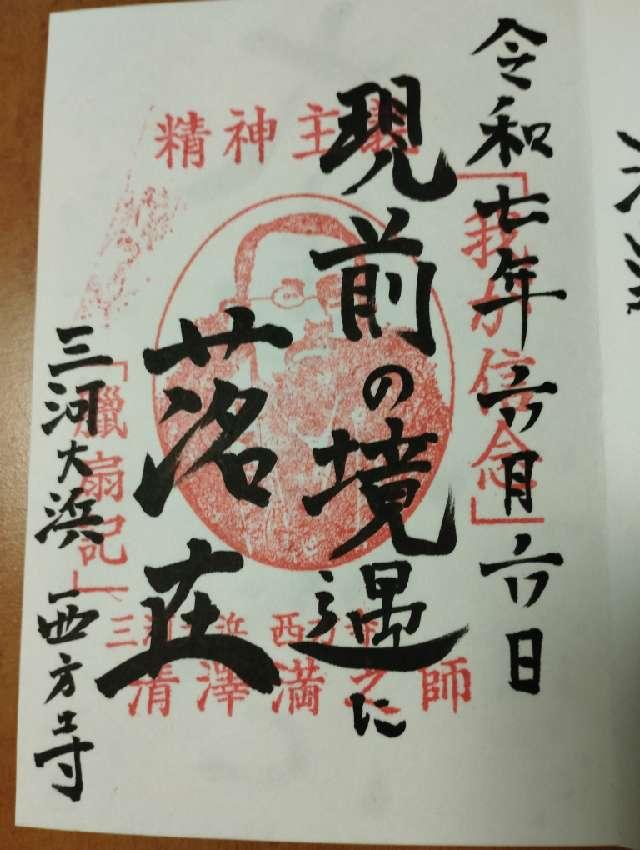 令和七年六月六日
現前の境遇に
落在
三河大浜 西方寺
精神主義
「我が信念」
「臘扇記」
三河大浜 西方寺
清澤満之師